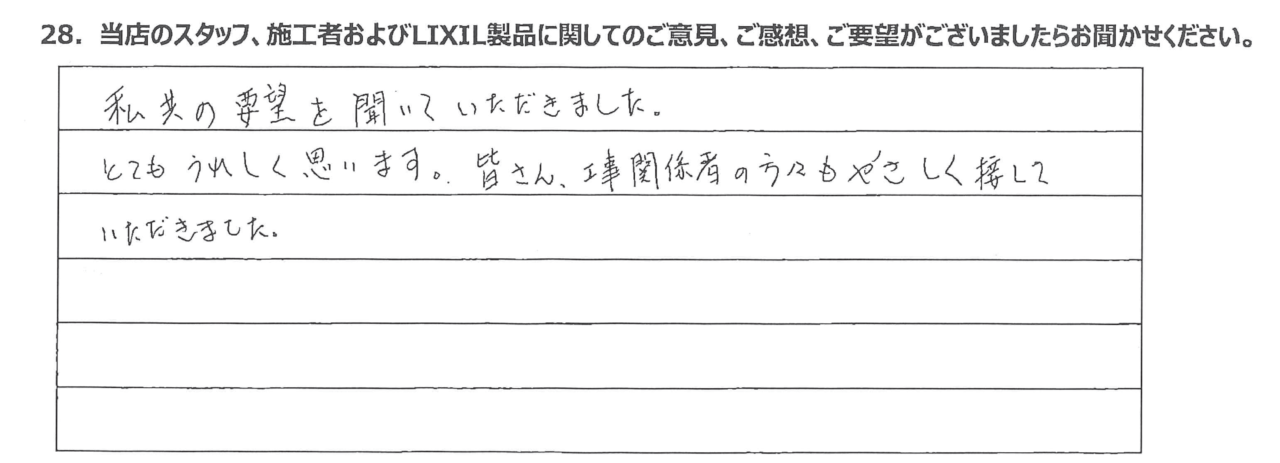 28. 当店のスタッフ、施工者およびLIXIL製品に関してのご意見、ご感想、ご要望がございましたらお聞かせください。
私共の要望を聞いていただきました。
とてもうれしく思います。皆さん、工事関係者の方々もやさしく接して
いただきました。